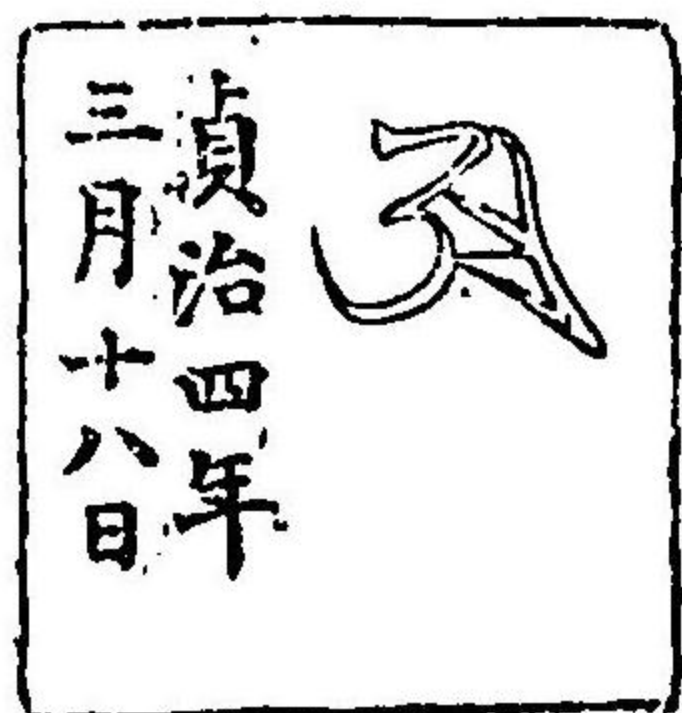 貞治四年
三月十八日